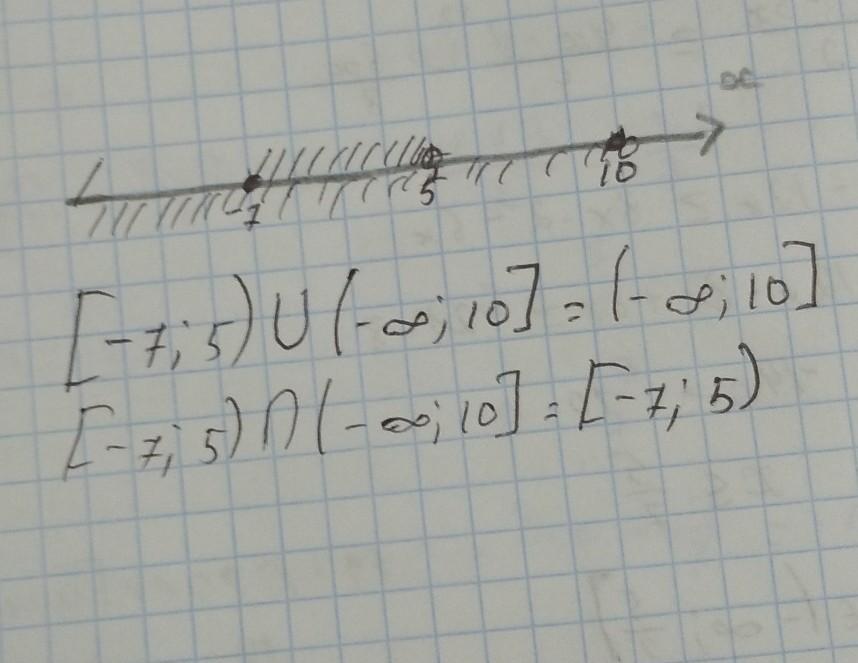 x
-7 5 10
[-7; 5) ∪ (-∞; 10] = (-∞; 10]
[-7; 5) ∩ (-∞; 10] = [-7; 5)